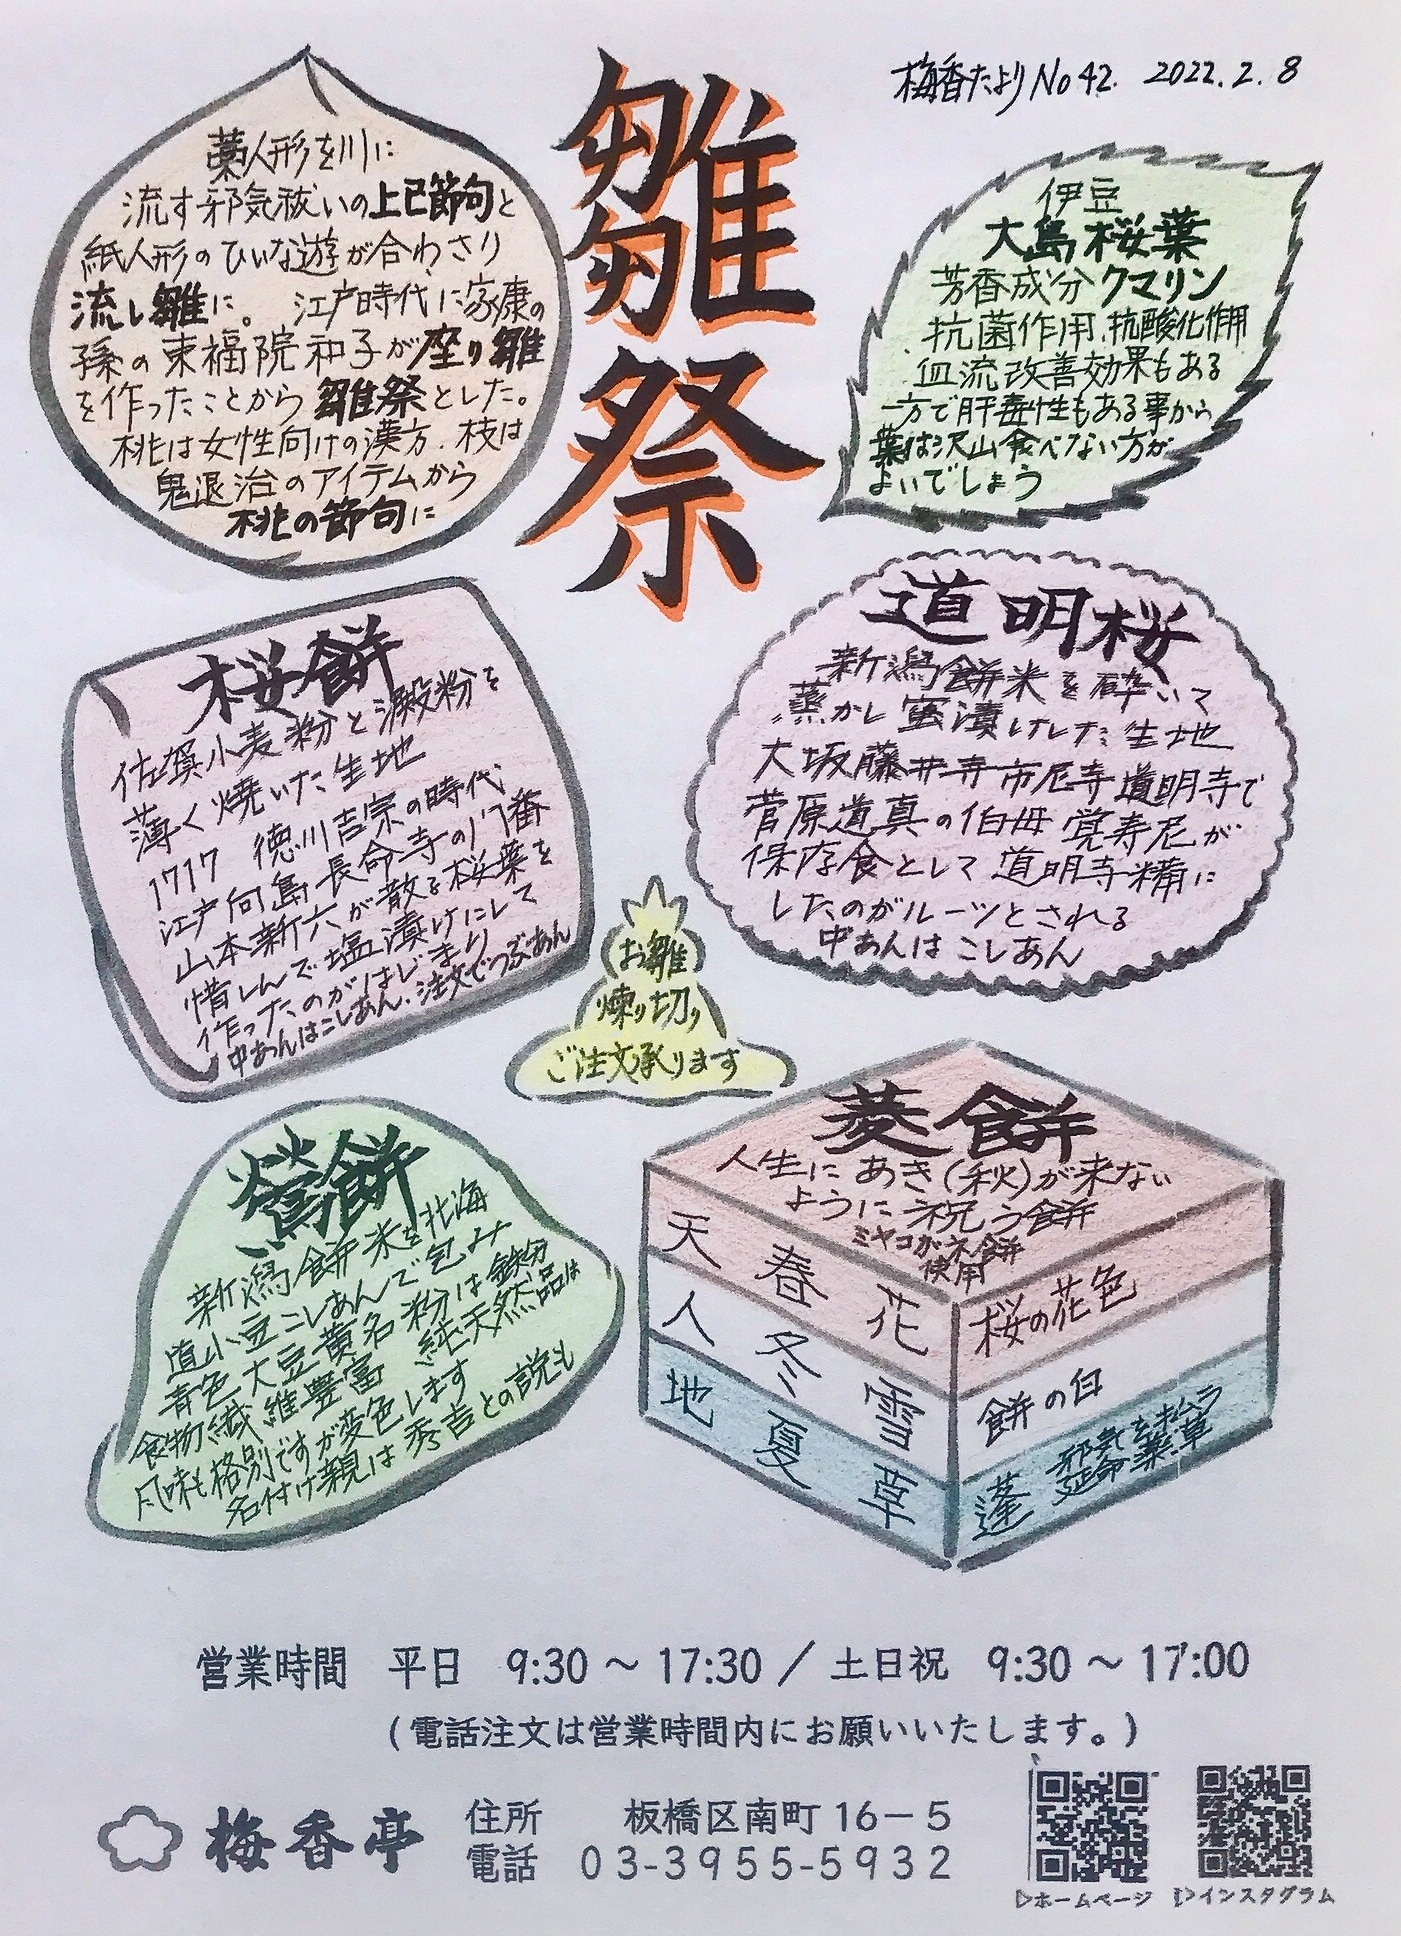 梅香たより No 42. 2022. 2. 8
雛祭
藁人形を川に
流す邪気祓いの上巳節句と
紙人形のひいな遊が合わさり
流し雛に。 江戸時代に家康の
孫の東福院和子が座り雛
を作ったことから雛祭とした。
桃は女性向けの漢方、枝は
鬼退治のアイテムから
桃の節句に
伊豆
大島桜葉
芳香成分クマリン
抗菌作用、抗酸化作用
血流改善効果もある
一方で肝毒性もある事から
葉は沢山食べない方が
よいでしょう
桜餅
佐賀小麦粉と澱粉を
薄く焼いた生地
1717 徳川吉宗の時代
江戸向島長命寺の門番
山本新六が散る桜葉を
惜しんで塩漬けにして
作ったのがはじまり
中あんはこしあん、注文でつぶあん
道明桜
新潟餅米を砕いて
蒸かし蜜漬けした生地
大坂藤井寺市尼寺道明寺で
菅原道真の伯母覚寿尼が
保存食として道明寺糒に
したのがルーツとされる
中あんはこしあん
お雛
煉り切り
ご注文承ります
鶯餅
新潟餅米を北海
道小豆こしあんで包み
青色大豆黄名粉は鉄分
食物繊維豊富 純天然品は
風味も格別ですが変色します
名付け親は秀吉との説も
菱餅
人生にあき(秋)が来ない
ように祝う餅
ミヤコガネ餅
使用
天 春 花 桜の花色
人 冬 雪 餅の白
地 夏 草 蓬 邪気を払う
延命薬草
営業時間 平日 9:30 ～ 17:30 / 土日祝 9:30 ～ 17:00
(電話注文は営業時間内にお願いいたします。)
梅香亭
住所 板橋区南町 16－5
電話 03-3955-5932
▷ホームページ ▷インスタグラム